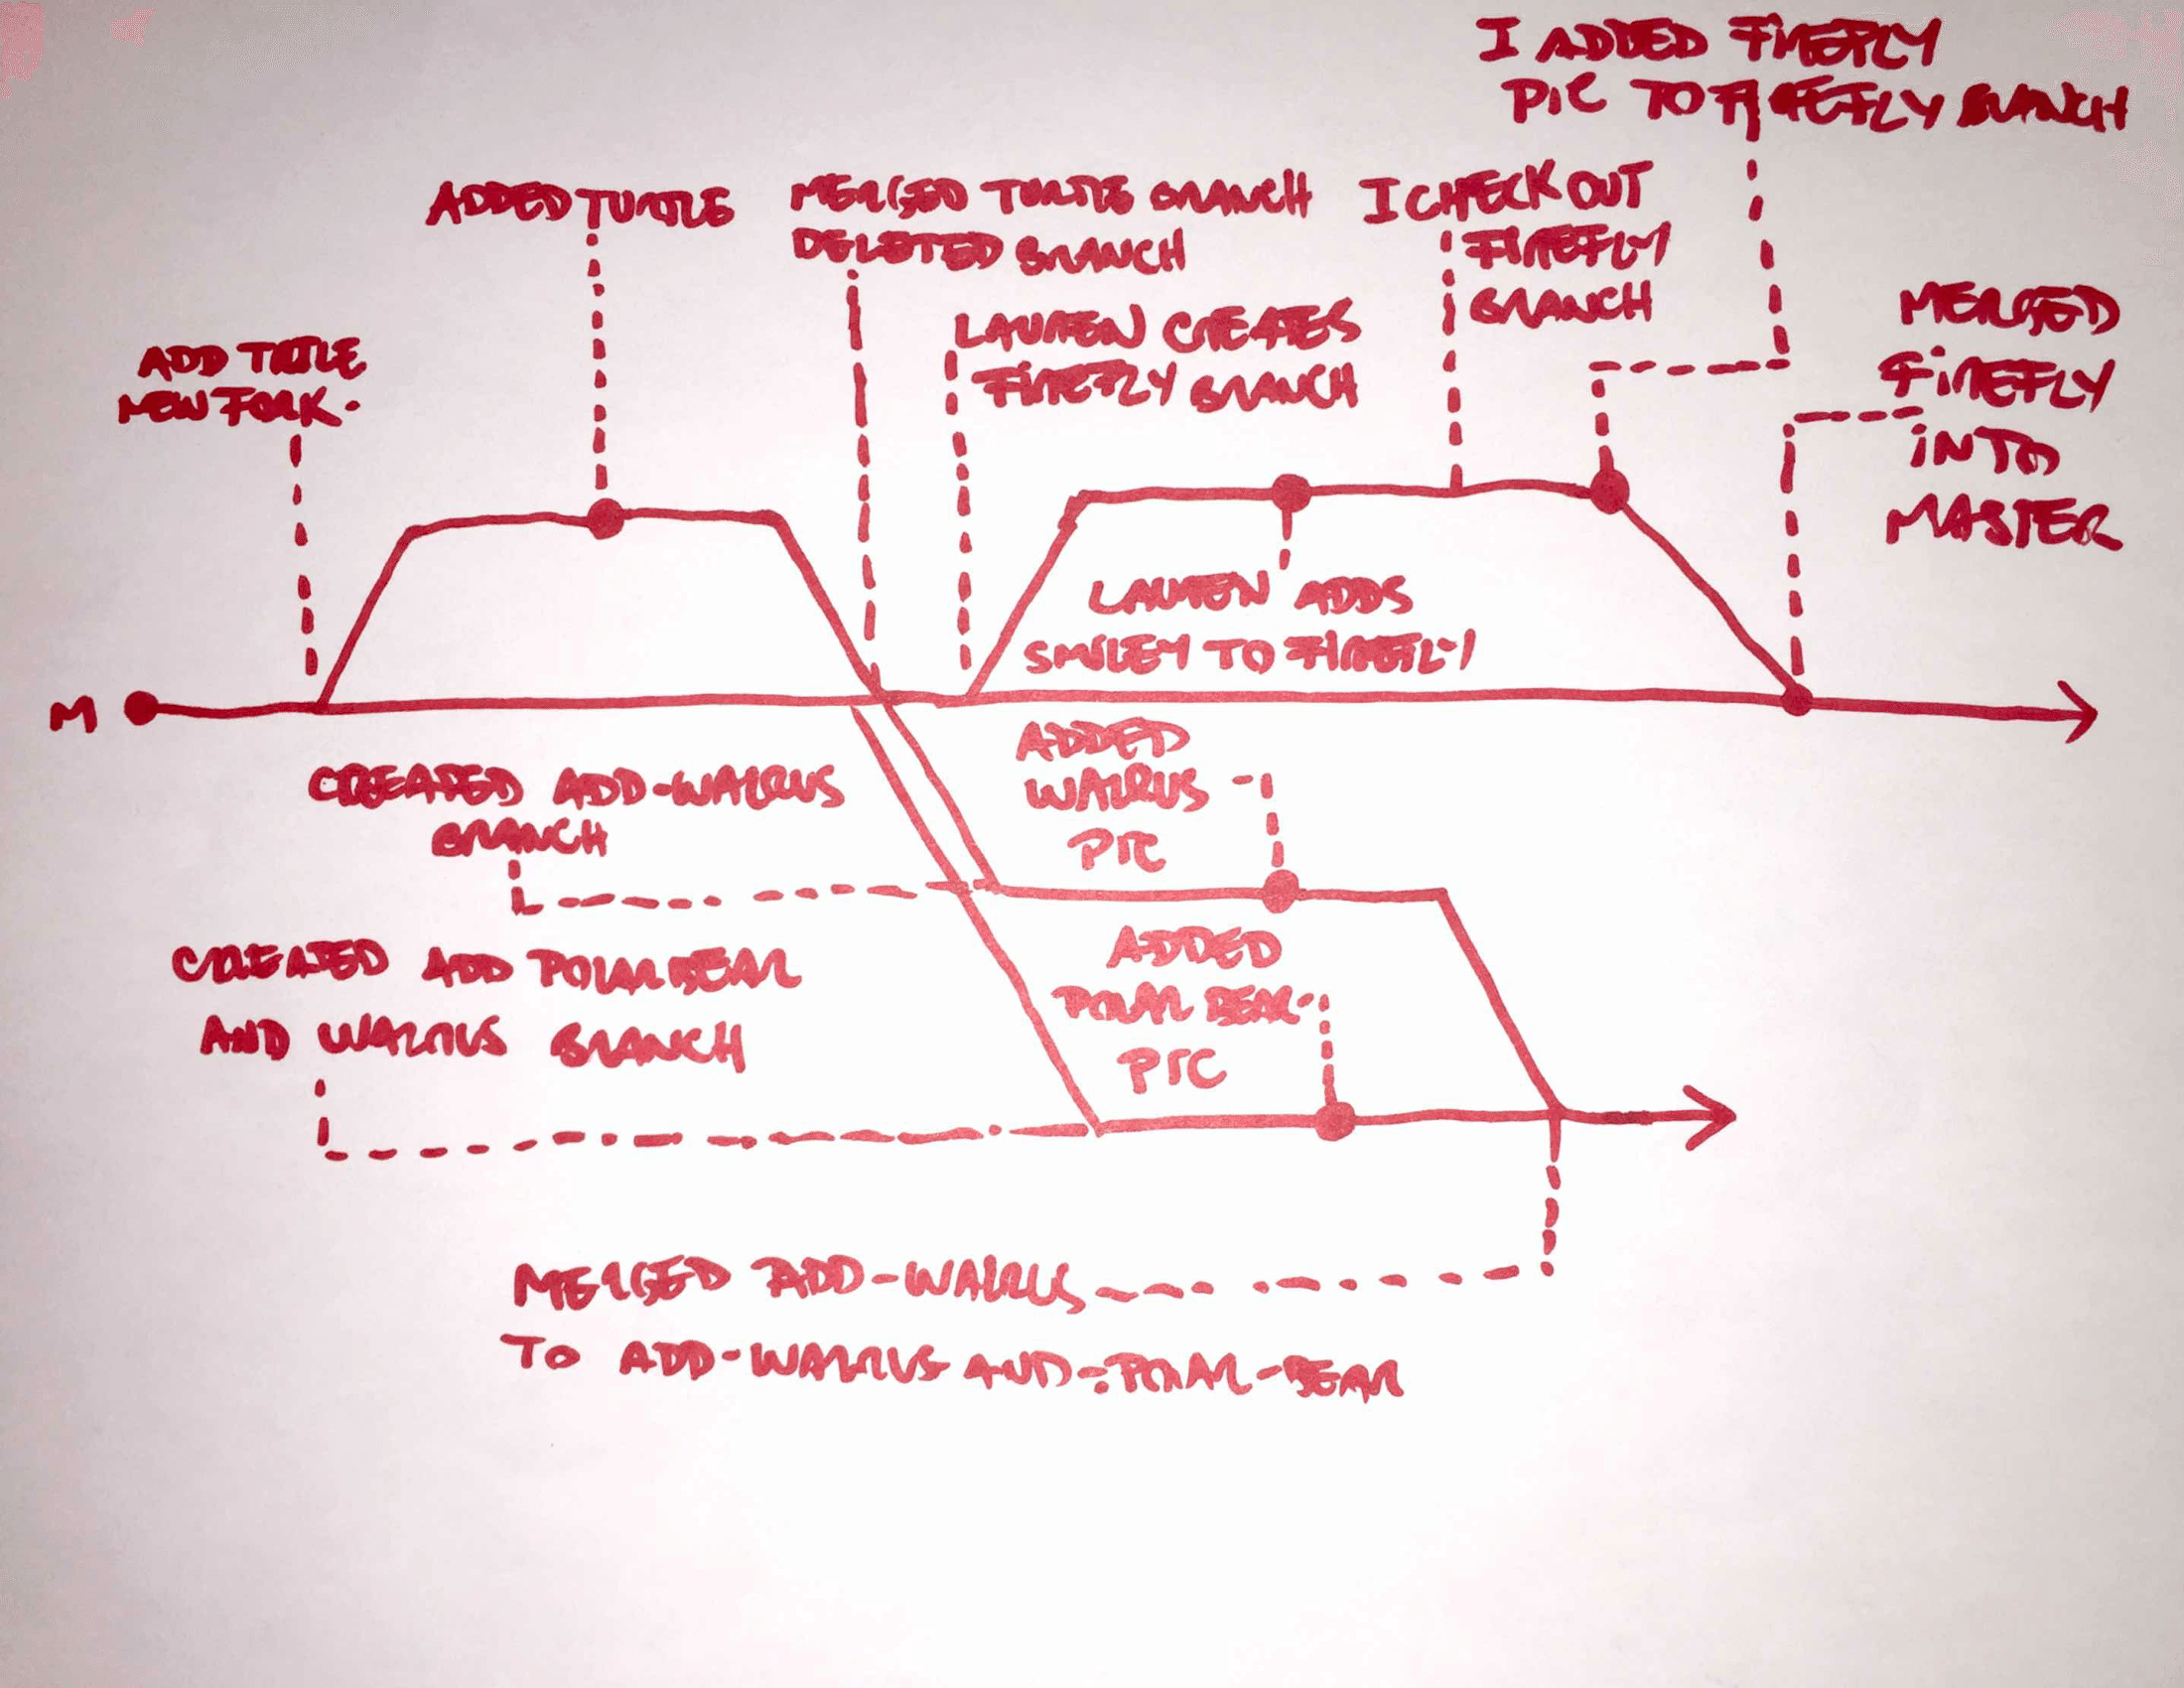 I ADDED FIREFLY
PIC TO FIREFLY BRANCH
ADDED TURTLE
MERGED TURTLE BRANCH
DELETED BRANCH
I CHECK OUT
FIREFLY
BRANCH
LAUREN CREATES
FIREFLY BRANCH
MERGED
FIREFLY
INTO
MASTER
ADD
NEW FORK.
LAUREN ADDS
SMILEY TO FIREFLY
M
ADDED
WALRUS
PIC
CREATED ADD-WALRUS
BRANCH
ADDED
POLAR BEAR
PIC
CREATED ADD POLAR BEAR
AND WALRUS BRANCH
MERGED ADD-WALRUS
TO ADD-WALRUS AND-POLAR-BEAR